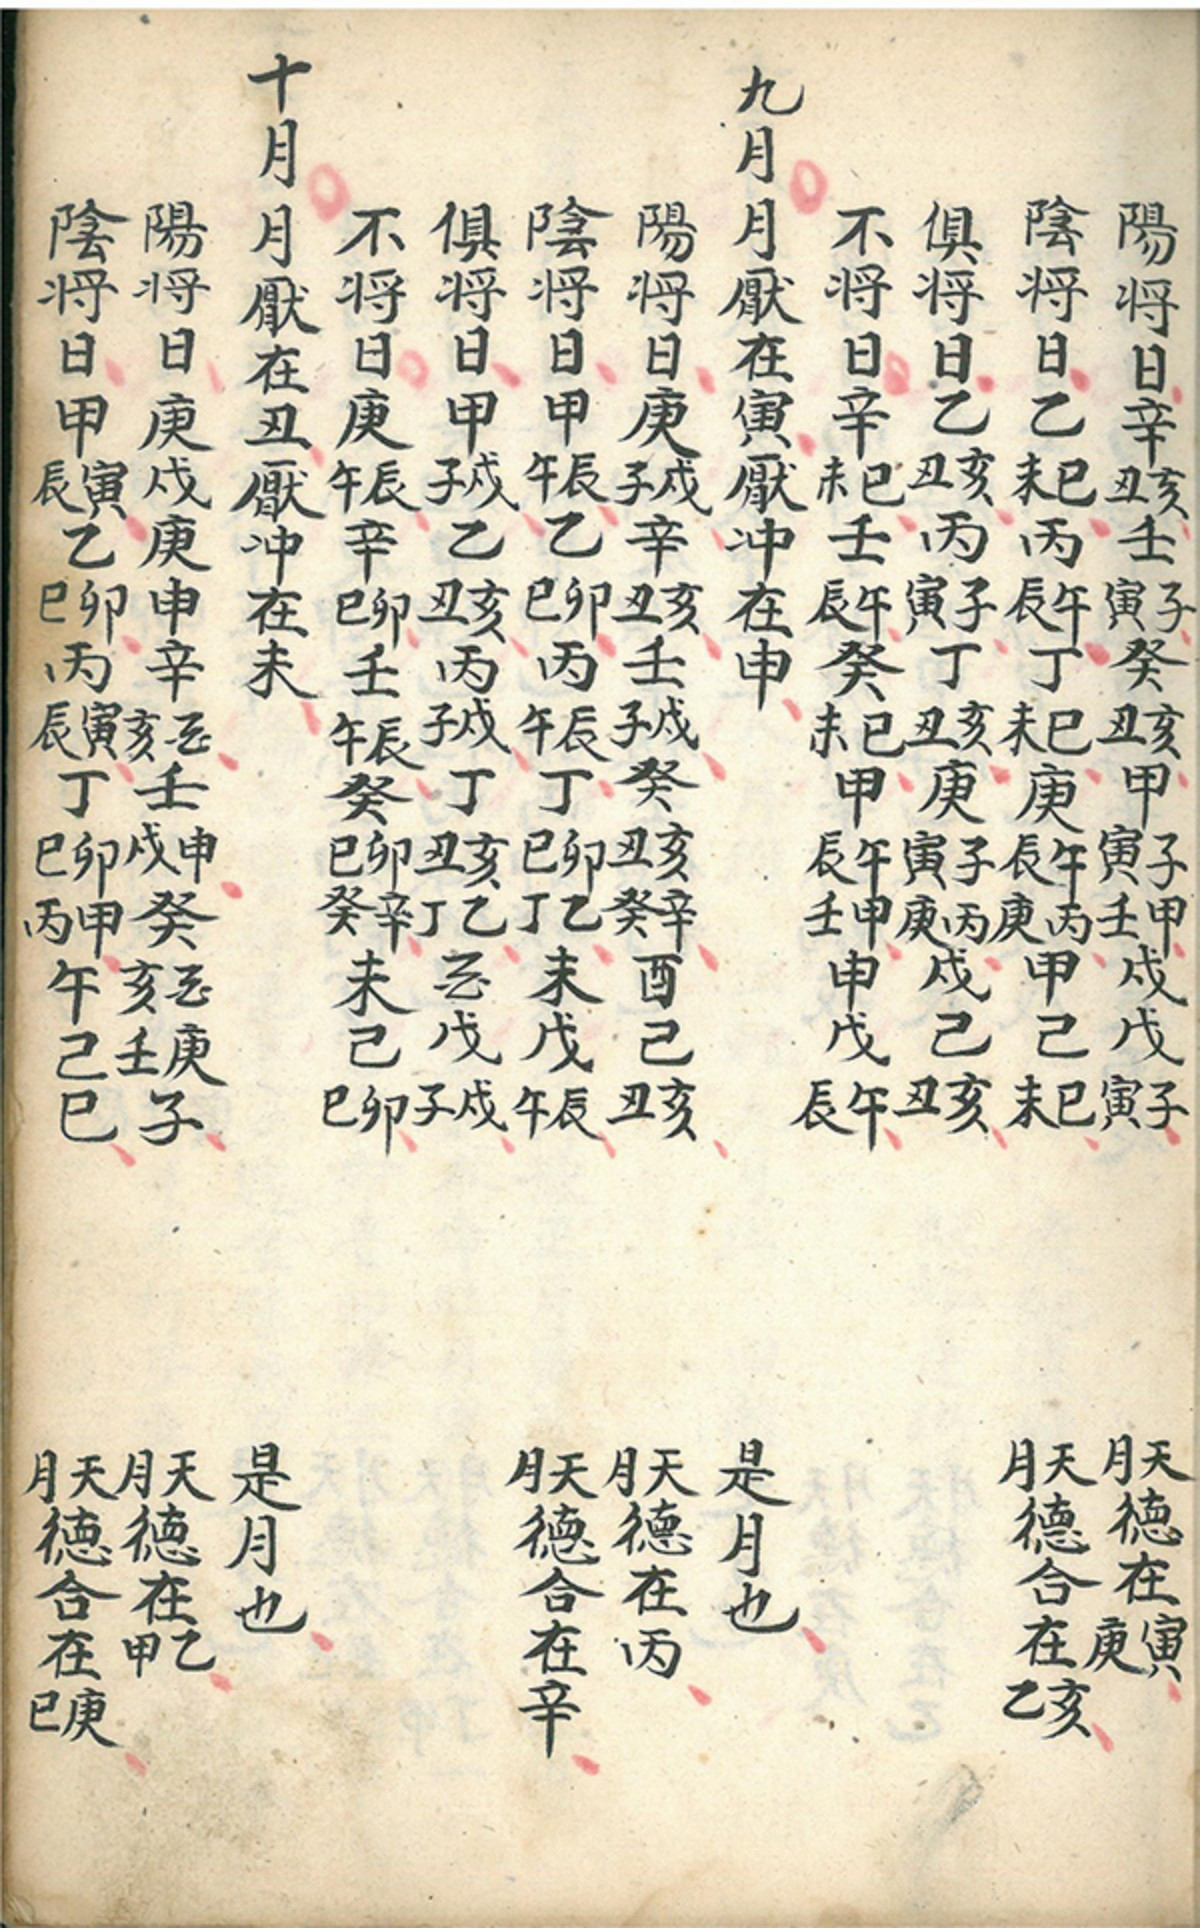 陽将日辛亥丑壬子寅癸亥丑甲子寅甲壬戌戊子寅 天月德在寅庚
陰将日乙巳未丙午辰丁巳未庚午辰丙庚甲己巳未 天月德合在亥乙
俱将日乙亥丑丙子寅丁亥丑庚子寅丙庚戌己亥丑
不将日辛巳未壬午辰癸巳未甲午辰甲壬申戊午辰
九月 月厭在寅厭冲在申 是月也
陽将日庚戌子辛亥丑壬戌子癸亥丑辛癸酉己亥丑 天月德在丙
陰将日甲辰午乙卯巳丙辰午丁卯巳乙丁未戊辰午 天月德合在辛
俱将日甲戌子乙亥丑丙戌子丁亥丑乙丁丣戊戌子
不将日庚辰午辛卯巳壬辰午癸卯巳辛癸未己卯巳
十月 月厭在丑厭冲在未 是月也
陽将日庚戌庚申辛丣亥壬申戌癸丣亥庚壬子 天月德在乙甲
陰将日甲寅辰乙卯巳丙寅辰丁卯巳甲丙午己巳 天月德合在庚巳